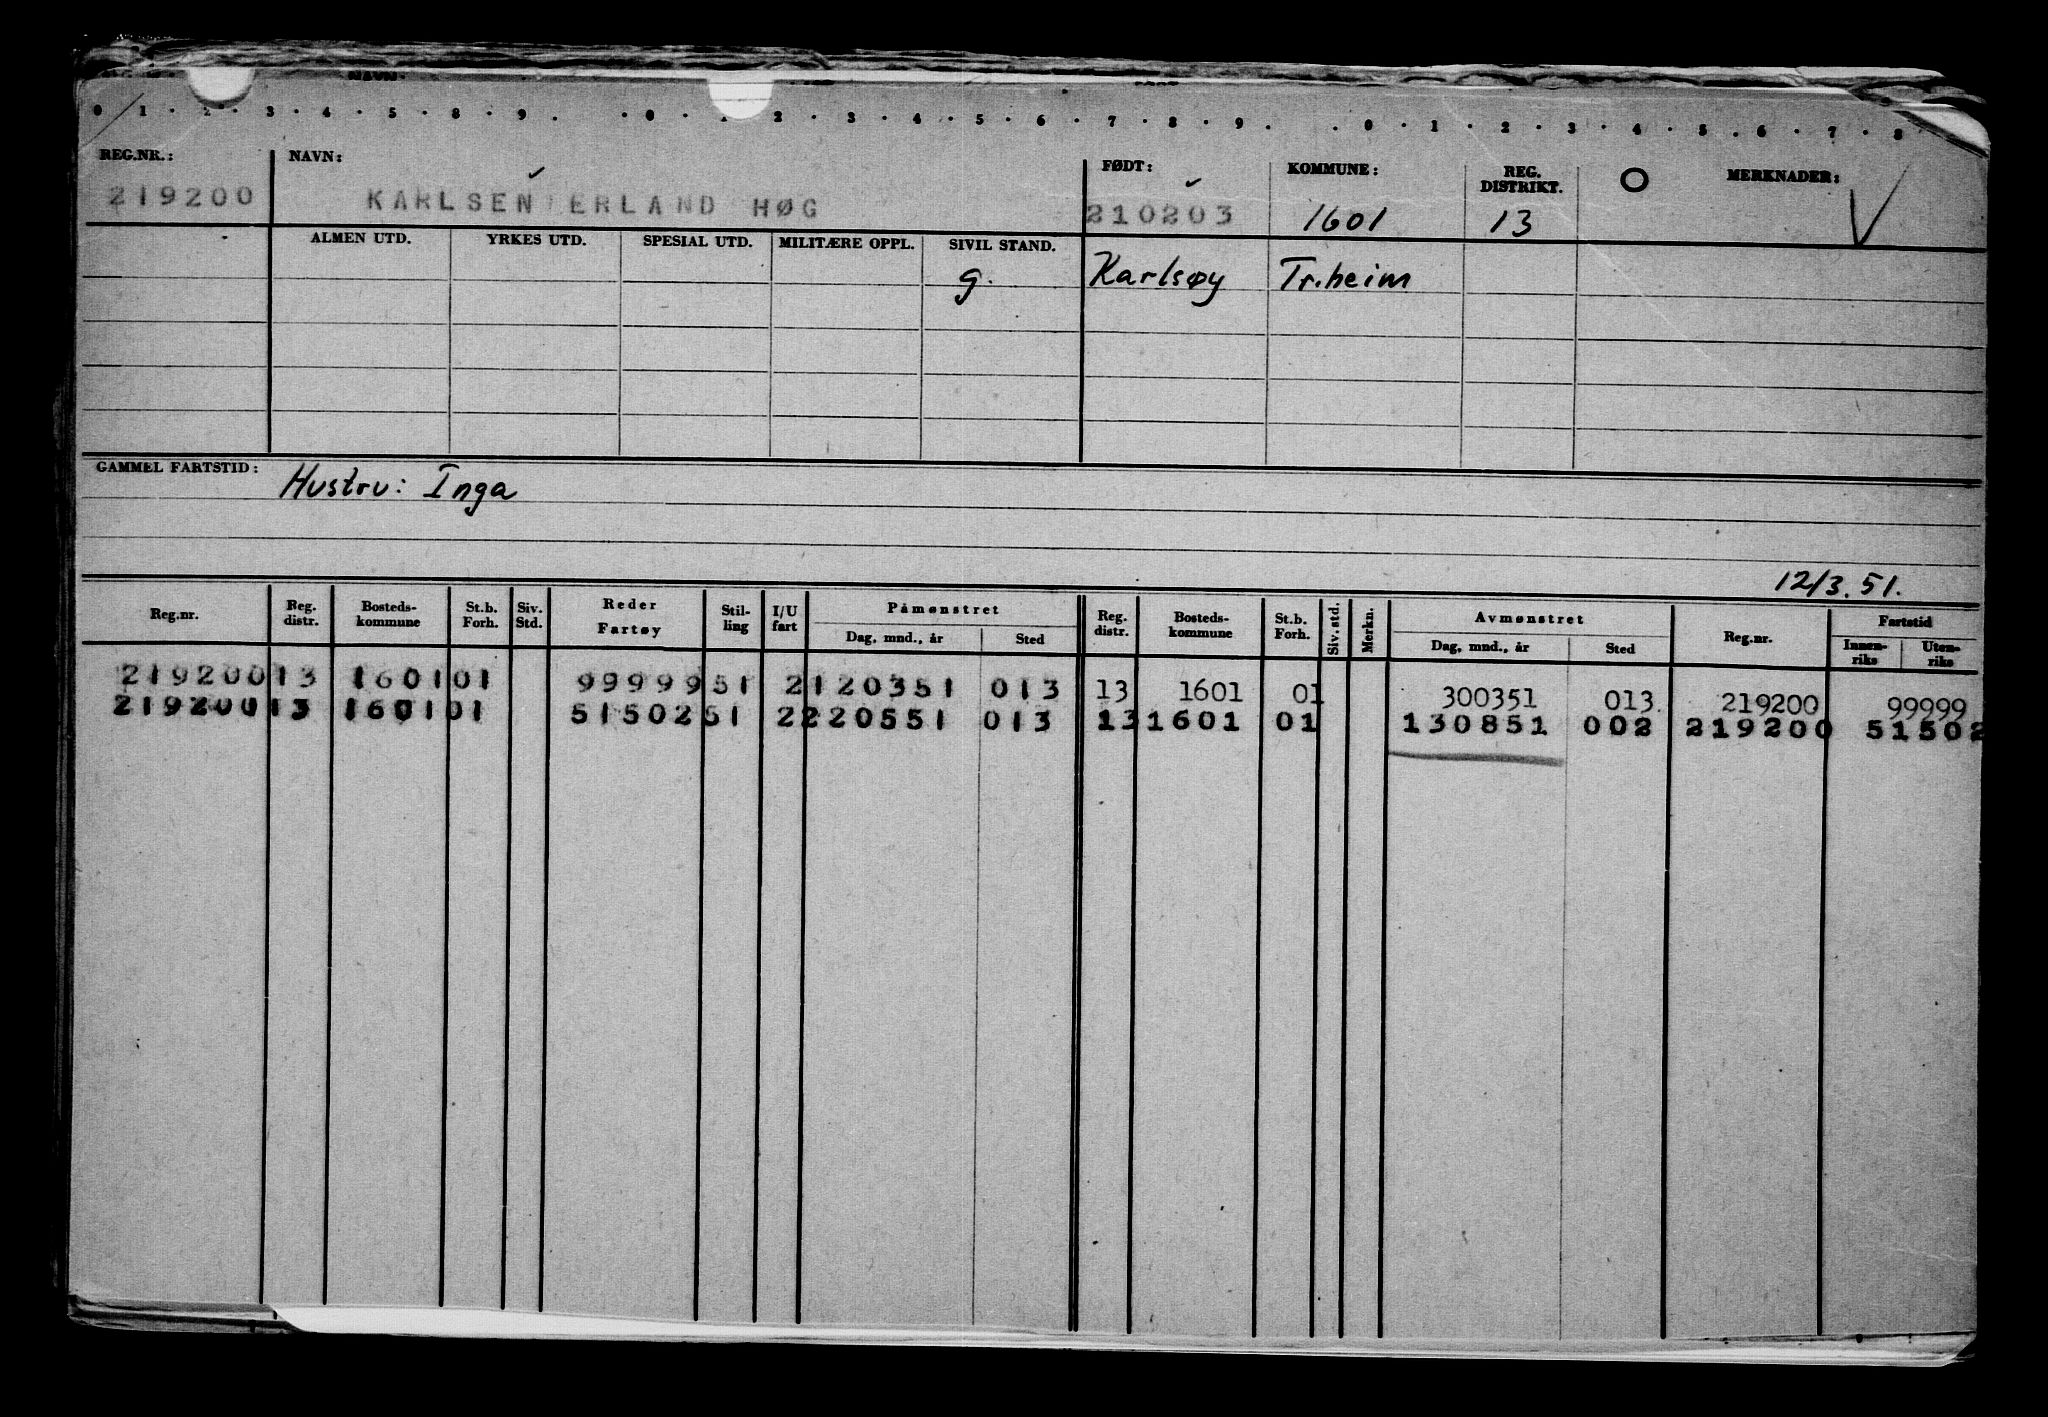 0 1 · 2 · 3 · 4 · 5 · 8 · 9 · · 0 · 1 2 · 3 · 4 · 5 · 6 · 7 · 8 · 9 · · 0 · 1 · 2 · 3 · 4 · 5 · 6 · 7 · 8
REG.NR.: NAVN: FØDT: KOMMUNE: REG. DISTRIKT. O MERKNADER:
219200 KARLSEN ERLAND HØG 210203 1601 13
ALMEN UTD. YRKES UTD. SPESIAL UTD. MILITÆRE OPPL. SIVIL STAND.
g. Karlsøy Tr.heim
GAMMEL FARTSTID: Hustru: Inga
12/3.51.
Reg.nr. Reg. distr. Bosteds-kommune St.b. Forh. Siv. Std. Reder Fartøy Stil-ling I/U fart Påmønstret Dag, mnd., år Sted Reg. distr. Bosteds-kommune St.b. Forh. Siv. std. Merkn. Avmønstret Dag, mnd., år Sted Reg.nr. Fartstid Innen-riks Uten-riks
219200 13 1601 01 99999 51 2 120351 013 13 1601 01 300351 013. 219200 99999
219200 13 1601 01 51502 51 2 220551 013 13 1601 01 130851 002 219200 51502